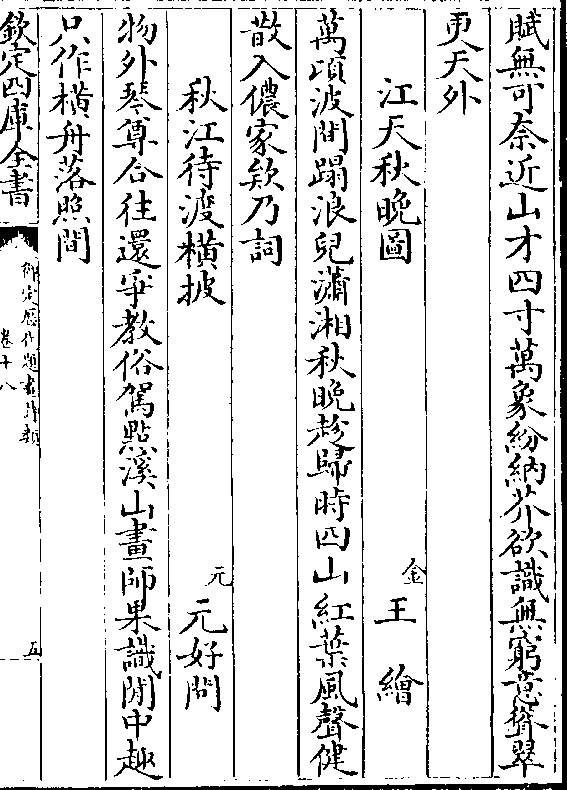 賦無可奈近山才四寸萬象紛納芥欲識無窮意聳翠
更天外
江天秋晚圖 金 王繪
萬頃波間蹋浪兒瀟湘秋晚趁歸時四山紅葉風聲健
散入儂家欸乃詞
秋江待渡橫披 元 元好問
物外琴尊合往還寧教俗駕點溪山畫師果識閒中趣
只作橫舟落照間
欽定四庫全書
御定歷代題畫詩類
卷十八
五